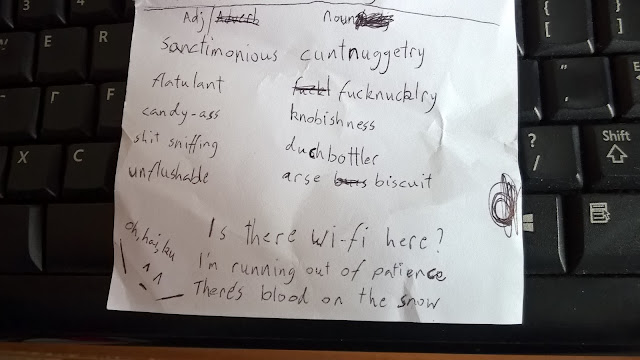 Adj/Adverb noun
sanctimonious cuntnuggetry
flatulant fuckl fucknucklry
candy-ass knobishness
shit sniffing duchbottler
unflushable arse buis biscuit
oh, hai, ku
Is there wi-fi here?
I'm running out of patience
There's blood on the snow
3
4
E
R
X
C
{
[
"
'
?
/
Shift